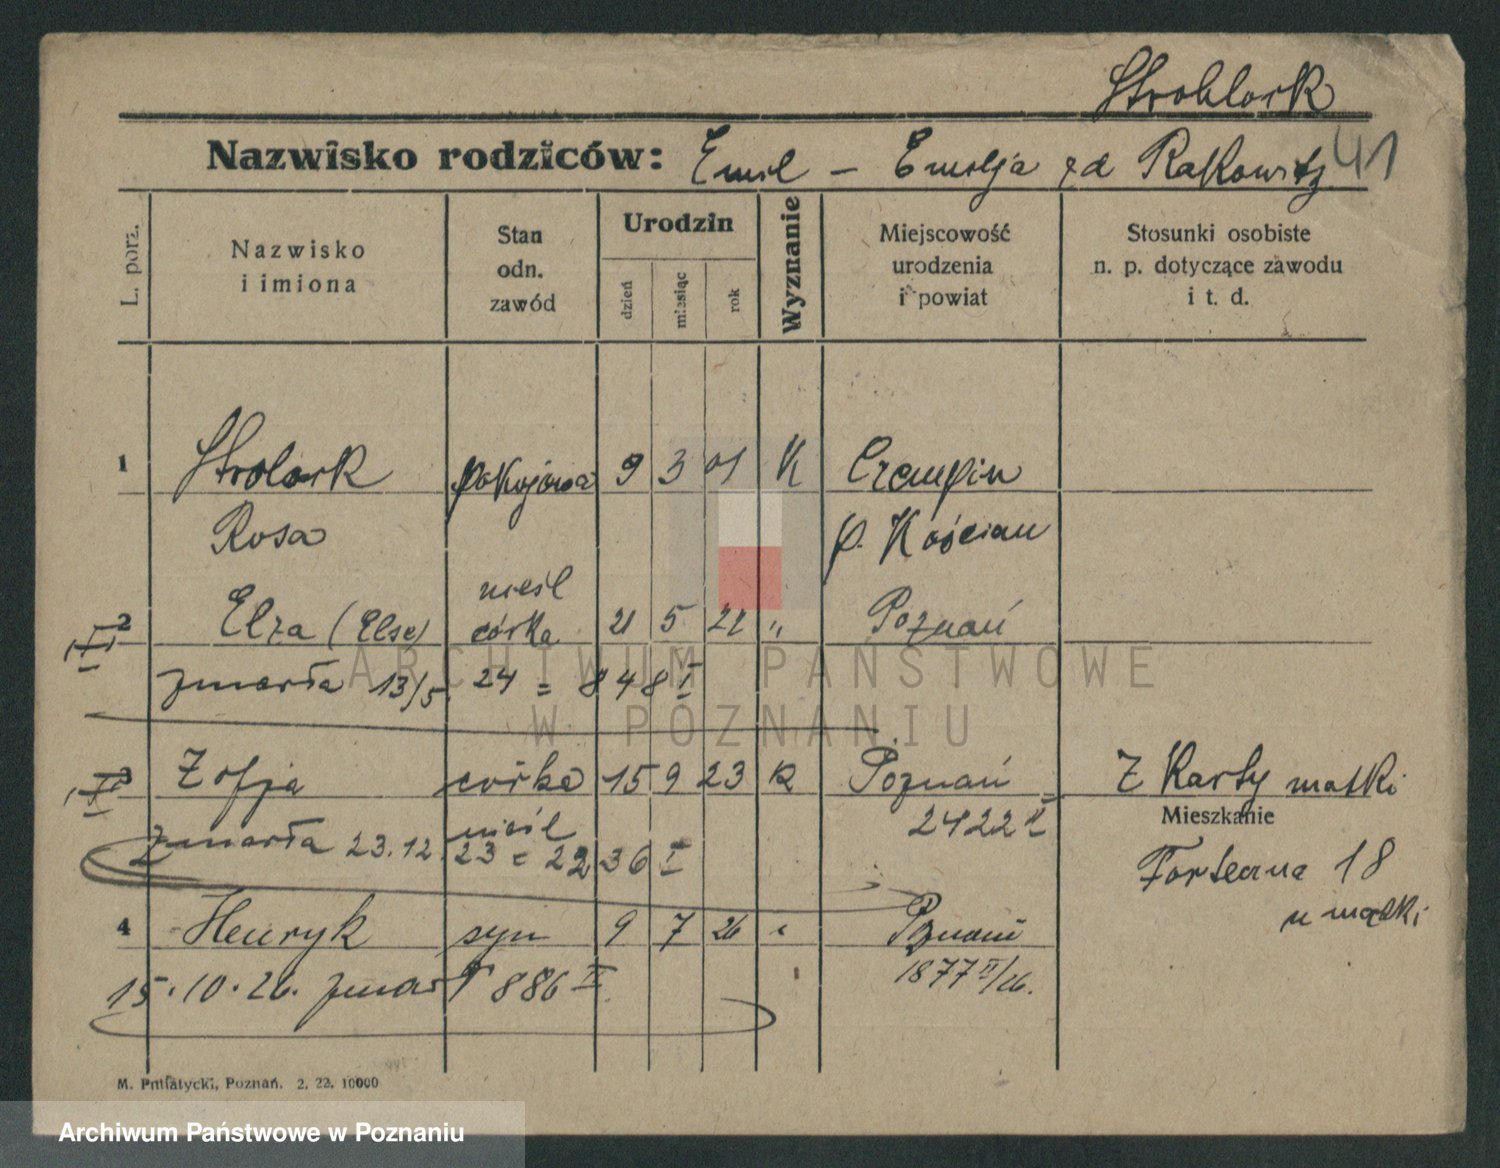 41
Nazwisko rodziców: Emil – Emilja zd Rakowitz
L. porz.
Nazwisko i imiona
Stan odn. zawód
Urodzin
dzień
miesiąc
rok
Wyznanie
Miejscowość urodzenia i powiat
Stosunki osobiste n. p. dotyczące zawodu i t. d.
1 pokojowa 9 3 01 K Czempiń
Rosa p. Kościan
nieśl
2 Elza (Else) córka 21 5 22 " Poznań
zmarła 13/5 24 = 848 I
3 Zofja córka 15 9 23 K Poznań Z Karty matki
nieśl 2422 II Mieszkanie
zmarła 23.12. 23 = 2236 I Forteczna 18
u matki
4 Henryk syn 9 7 26 " Poznań
15.10.26. zmarł 886 II 1877 II/26.
M. Putiatycki, Poznań. 2. 22. 10000
ARCHIWUM PAŃSTWOWE
W POZNANIU
Archiwum Państwowe w Poznaniu